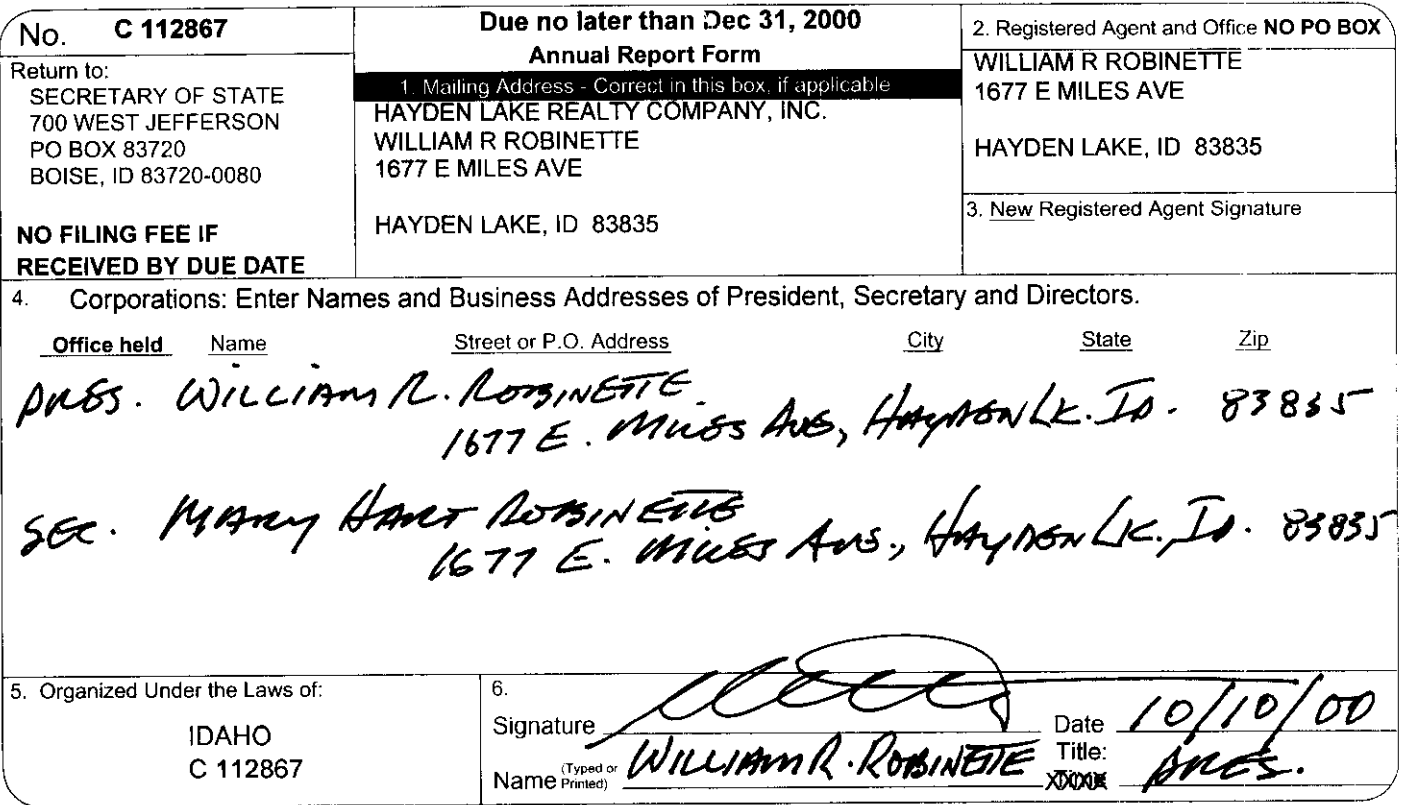 No. C 112867
Return to:
SECRETARY OF STATE
700 WEST JEFFERSON
PO BOX 83720
BOISE, ID 83720-0080
NO FILING FEE IF
RECEIVED BY DUE DATE
Due no later than Dec 31, 2000
Annual Report Form
1. Mailing Address - Correct in this box, if applicable
HAYDEN LAKE REALTY COMPANY, INC.
WILLIAM R ROBINETTE
1677 E MILES AVE
HAYDEN LAKE, ID 83835
2. Registered Agent and Office NO PO BOX
WILLIAM R ROBINETTE
1677 E MILES AVE
HAYDEN LAKE, ID 83835
3. New Registered Agent Signature
4. Corporations: Enter Names and Business Addresses of President, Secretary and Directors.
Office held Name Street or P.O. Address City State Zip
PRES. WILLIAM R. ROBINETTE
1677 E. MILES AVE, HAYDEN LK. ID. 83835
SEC. MARY HART ROBINETTE
1677 E. MILES AVE., HAYDEN LK., ID. 83835
5. Organized Under the Laws of:
IDAHO
C 112867
6.
Signature Date 10/10/00
Name (Typed or Printed) WILLIAM R. ROBINETTE Title: PRES.